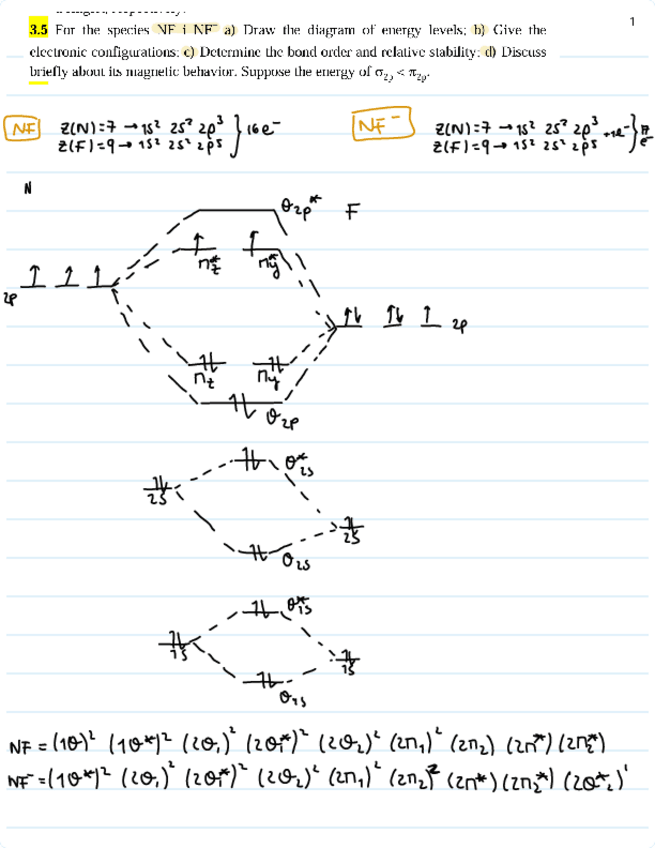 1
3.5 For the species NF i NF⁻ a) Draw the diagram of energy levels; b) Give the
electronic configurations; c) Determine the bond order and relative stability; d) Discuss
briefly about its magnetic behavior. Suppose the energy of σ₂ₚ < π₂ₚ.
NF Z(N)=7 → 1s² 2s² 2p³ } 16e⁻ NF⁻ Z(N)=7 → 1s² 2s² 2p³ +1e⁻ } 17
Z(F)=9 → 1s² 2s² 2p5 Z(F)=9 → 1s² 2s² 2p5 e⁻
N
σ2p* F
πz* πy*
2p
2p
πz πy
σ2p
σ*2s
2s
2s
σ2s
σ*1s
1s
1s
σ1s
NF = (1σ)² (1σ*)² (2σ₁)² (2σ₁*)² (2σ₂)² (2π₁)² (2π₂) (2π*) (2π₂*)
NF⁻ = (1σ*)² (2σ₁)² (2σ₁*)² (2σ₂)² (2π₁)² (2π₂)² (2π*) (2π₂*) (2σ*₂)¹